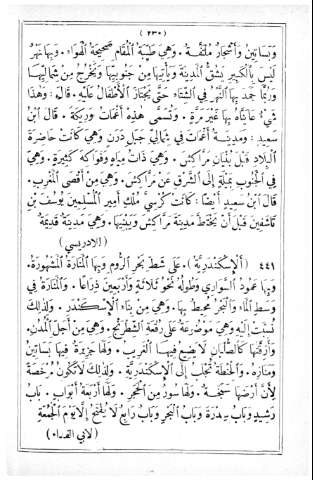 ( ٢٣٠ )
وَبَسَاتِينَ وَأَشْجَارٍ مُلْتَفَّةٍ. وَهِيَ طَيِّبَةُ الْمُقَامِ صَحِيحَةُ الْهَوَاءِ. وَبِهَا نَهْرٌ
لَيْسَ بِالْكَبِيرِ يَشُقُّ الْمَدِينَةَ وَيَأْتِيهَا مِنْ جَنُوبِيِّهَا وَيَخْرُجُ مِنْ شِمَالِيِّهَا
وَرُبَّمَا جَمَدَ بِهَا النَّهْرُ فِي الشِّتَاءِ حَتَّى يَجْتَازَ الْأَطْفَالُ عَلَيْهِ. قَالَ: وَهٰذَا
شَيْءٌ عَايَنَّاهُ بِهَا غَيْرَ مَرَّةٍ. وَتُسَمَّى هٰذِهِ أَغْمَاتَ وَرِيكَةَ. قَالَ ابْنُ
سَعِيدٍ: وَمَدِينَةُ أَغْمَاتَ فِي شِمَالِيِّ جَبَلِ دَرَنَ وَهِيَ كَانَتْ حَاضِرَةَ
الْبِلَادِ قَبْلَ بُنْيَانِ مَرَّاكُشَ. وَهِيَ ذَاتُ مِيَاهٍ وَفَوَاكِهَ كَثِيرَةٍ. وَهِيَ
فِي الْجَنُوبِ بِمَيْلَةٍ إِلَى الشَّرْقِ عَنْ مَرَّاكُشَ. وَهِيَ مِنْ أَقْصَى الْمَغْرِبِ.
قَالَ ابْنُ سَعِيدٍ أَيْضًا: كَانَتْ كُرْسِيَّ مُلْكِ أَمِيرِ الْمُسْلِمِينَ يُوسُفَ بْنِ
تَاشَفِينَ قَبْلَ أَنْ يَخْتَطَّ مَدِينَةَ مَرَّاكُشَ وَيَبْنِيَهَا. وَهِيَ مَدِينَةٌ قَدِيمَةٌ
(للادريسي)
٤٤١ (أَلْإِسْكَنْدَرِيَّةُ). عَلَى شَطِّ بَحْرِ الرُّومِ وَبِهَا الْمَنَارَةُ الْمَشْهُورَةُ.
وَبِهَا عَمُودُ السَّوَارِي وَطُولُهُ نَحْوُ ثَلَاثَةٍ وَأَرْبَعِينَ ذِرَاعًا. وَالْمَنَارَةُ فِي
وَسَطِ الْمَاءِ وَالْبَحْرُ مُحِيطٌ بِهَا. وَهِيَ مِنْ بِنَاءِ الْإِسْكَنْدَرِ. وَلِذٰلِكَ
نُسِبَتْ إِلَيْهِ وَهِيَ مَوْضُوعَةٌ عَلَى رُقْعَةِ الشَّطْرَنْجِ. وَهِيَ مِنْ أَجَلِّ الْمُدُنِ.
وَأَزِقَّتُهَا كَالصُّلْبَانِ لَا يَضِيعُ فِيهَا الْغَرِيبُ. وَلَهَا جَزِيرَةٌ فِيهَا بَسَاتِينُ
وَمَنَازِهُ. وَالْحِنْطَةُ تُجْلَبُ إِلَى الْإِسْكَنْدَرِيَّةِ. وَلِذٰلِكَ لَا تَكُونُ مُرْخَصَةً
لِأَنَّ أَرْضَهَا سَبِخَةٌ. وَلَهَا سُورٌ مِنَ الْحَجَرِ. وَلَهَا أَرْبَعَةُ أَبْوَابٍ. بَابُ
رَشِيدٍ وَبَابُ سِدْرَةَ وَبَابُ الْبَحْرِ وَبَابٌ رَابِعٌ لَا يُفْتَحُ إِلَّا يَوْمَ الْجُمْعَةِ
(لابي الفداء)